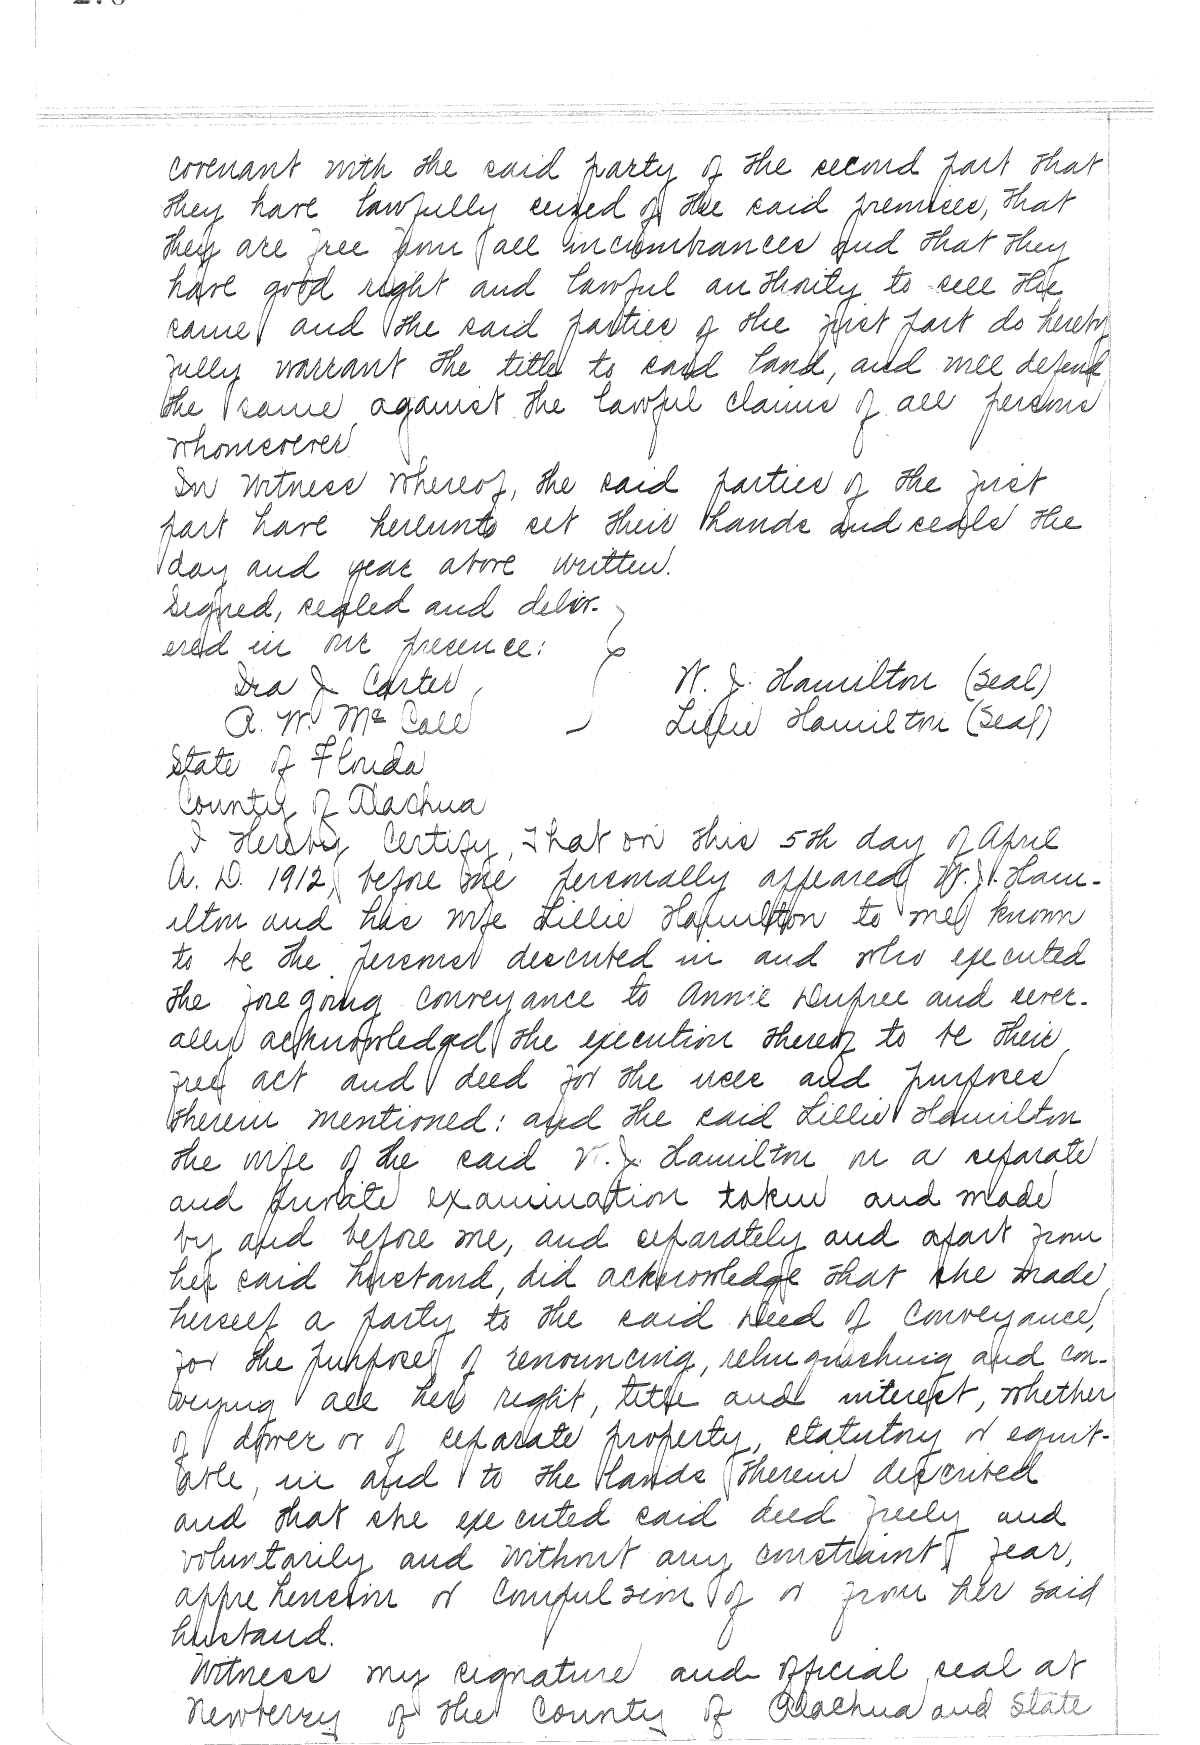 covenant with the said party of the second part that
they have lawfully seized of the said premises, that
they are free from all incumbrances and that they
have good right and lawful authority to sell the
same and the said parties of the first part do hereby
fully warrant the title to said land, and will defend
the same against the lawful claims of all persons
whomsoever
In Witness Whereof, the said parties of the first
part have hereunto set their hands and seals the
day and year above written.
Signed, sealed and deliv-
ered in our presence:
Ira J. Carter
W. J. Hamilton (Seal)
A. W. McCall
Lillie Hamilton (Seal)
State of Florida
County of Alachua
I Hereby Certify, That on this 5th day of April
A. D. 1912, before me personally appeared W. J. Ham-
ilton and his wife Lillie Hamilton to me known
to be the persons described in and who executed
the foregoing conveyance to Annie Dupree and sever-
ally acknowledged the execution thereof to be their
free act and deed for the uses and purposes
therein mentioned: and the said Lillie Hamilton
the wife of the said W. J. Hamilton on a separate
and private examination taken and made
by and before me, and separately and apart from
her said husband, did acknowledge that she made
herself a party to the said Deed of Conveyance,
for the purpose of renouncing, relinquishing and con-
veying all her right, title and interest, whether
of dower or of separate property, statutory or equit-
able, in and to the lands therein described
and that she executed said deed freely and
voluntarily and without any constraint, fear,
apprehension or compulsion of or from her said
husband.
Witness my signature and official seal at
Newberry of the County of Alachua and State